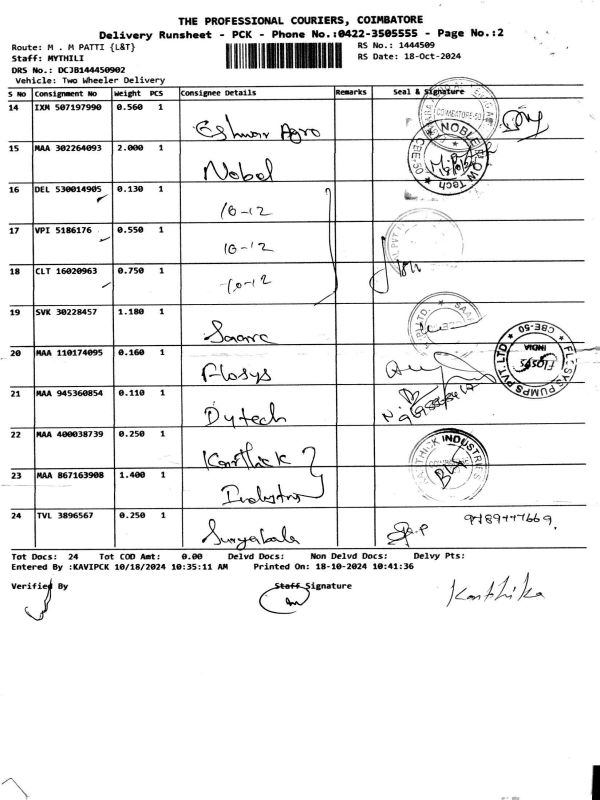 THE PROFESSIONAL COURIERS, COIMBATORE
Delivery Runsheet - PCK - Phone No.:0422-3505555 - Page No.:2
Route: M . M PATTI {L&T}
RS No.: 1444509
Staff: MYTHILI
RS Date: 18-Oct-2024
DRS No.: DCJB144450902
Vehicle: Two Wheeler Delivery
S No Consignment No Weight PCS Consignee Details Remarks Seal & Signature
14 IXM 507197990 0.560 1 Eshwar Agro
COIMBATORE-50
15 MAA 302264093 2.000 1 Nobel
NOBLE FLOW Tech CBE-50
16 DEL 530014905 0.130 1 10-12
17 VPI 5186176 0.550 1 10-12
18 CLT 16020963 0.750 1 10-12
19 SVK 30228457 1.180 1 Saarc
20 MAA 110174095 0.160 1 Flosys
FLOSYS PUMPS PVT. LTD CBE-50 INDIA
21 MAA 945360854 0.110 1 Dytech
22 MAA 400038739 0.250 1 Karthick
KARTHICK INDUSTRIES
23 MAA 867163908 1.400 1 Industries
24 TVL 3896567 0.250 1 Suryabala
Tot Docs: 24 Tot COD Amt: 0.00 Delvd Docs: Non Delvd Docs: Delvy Pts:
Entered By :KAVIPCK 10/18/2024 10:35:11 AM Printed On: 18-10-2024 10:41:36
Verified By Staff Signature
Karthika